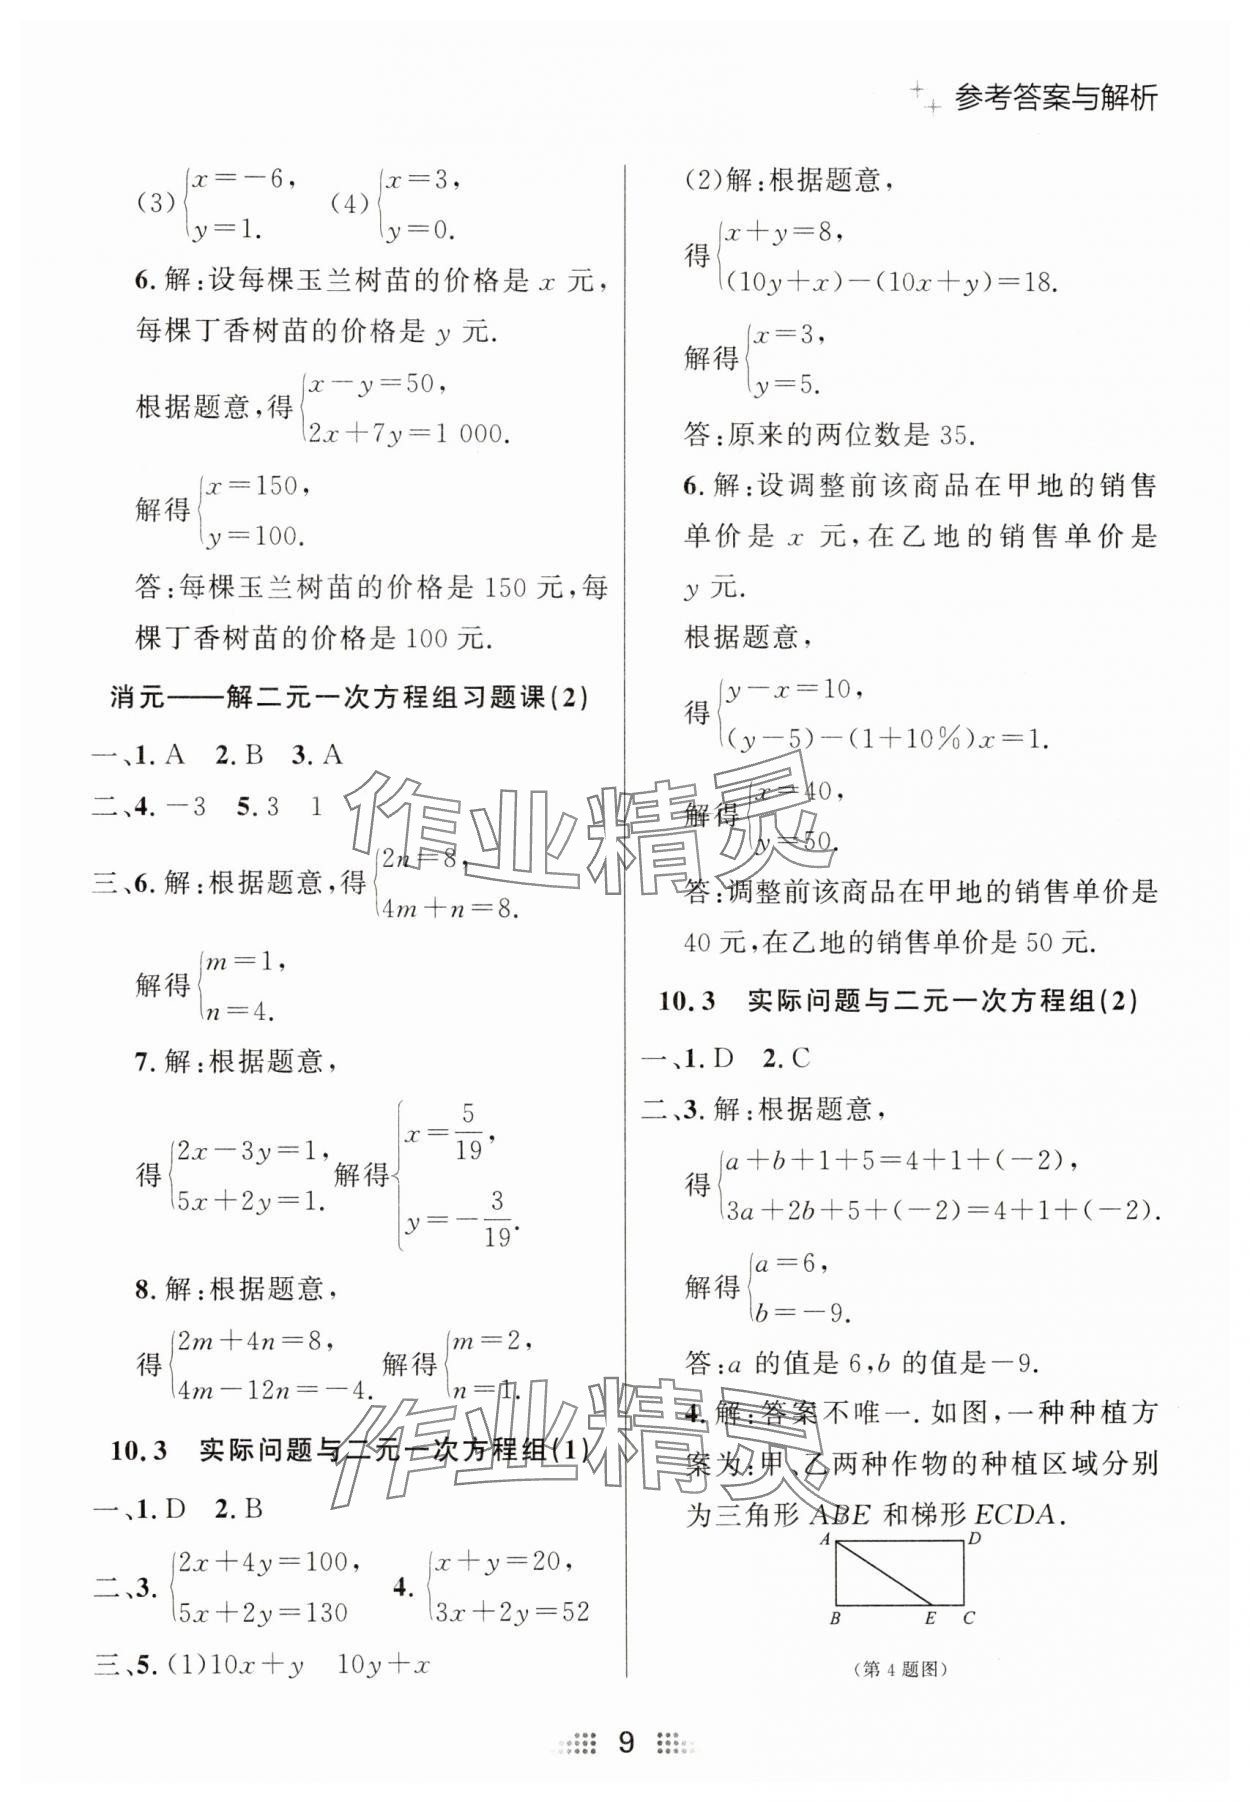 参考答案与解析
(3){x=-6, y=1. (4){x=3, y=0.
6.解:设每棵玉兰树苗的价格是 x 元,
每棵丁香树苗的价格是 y 元.
根据题意,得{x-y=50, 2x+7y=1 000.
解得{x=150, y=100.
答:每棵玉兰树苗的价格是 150 元,每
棵丁香树苗的价格是 100 元.
消元——解二元一次方程组习题课(2)
一、1. A 2. B 3. A
二、4. -3 5. 3 1
三、6.解:根据题意,得{2n=8, 4m+n=8.
解得{m=1, n=4.
7.解:根据题意,
得{2x-3y=1, 5x+2y=1. 解得{x=5/19, y=-3/19.
8.解:根据题意,
得{2m+4n=8, 4m-12n=-4. 解得{m=2, n=1.
10.3 实际问题与二元一次方程组(1)
一、1. D 2. B
二、3. {2x+4y=100, 5x+2y=130 4. {x+y=20, 3x+2y=52
三、5.(1)10x+y 10y+x
(2)解:根据题意,
得{x+y=8, (10y+x)-(10x+y)=18.
解得{x=3, y=5.
答:原来的两位数是 35.
6.解:设调整前该商品在甲地的销售
单价是 x 元,在乙地的销售单价是
y 元.
根据题意,
得{y-x=10, (y-5)-(1+10%)x=1.
解得{x=40, y=50.
答:调整前该商品在甲地的销售单价是
40 元,在乙地的销售单价是 50 元.
10.3 实际问题与二元一次方程组(2)
一、1. D 2. C
二、3.解:根据题意,
得{a+b+1+5=4+1+(-2), 3a+2b+5+(-2)=4+1+(-2).
解得{a=6, b=-9.
答:a 的值是 6,b 的值是-9.
4.解:答案不唯一.如图,一种种植方
案为:甲、乙两种作物的种植区域分别
为三角形 ABE 和梯形 ECDA.
A D
B E C
(第 4 题图)
9
作业精灵
作业精灵